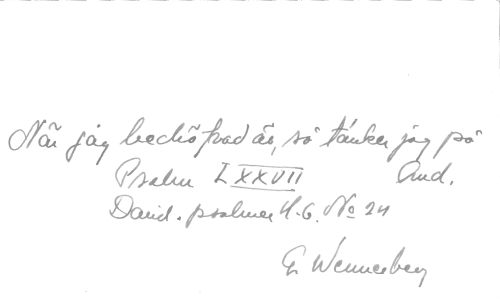 När jag bedröfvad är, så tänker jag på
Psalm LXXVII And.
David. psalmer H. 6. No 24
G Wennerberg